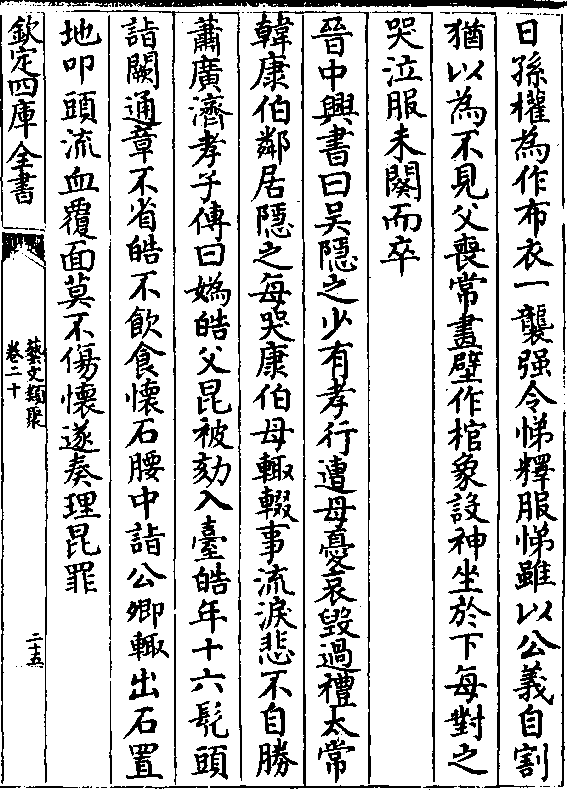 日孫權為作布衣一襲强令悌釋服悌雖以公義自割
猶以為不見父喪常畫壁作棺象設神坐於下每對之
哭泣服未闋而卒
晉中興書曰吳隱之少有孝行遭母憂哀毀過禮太常
韓康伯鄰居隱之每哭康伯母輙輟事流淚悲不自勝
蕭廣濟孝子傳曰媯皓父昆被劾入臺皓年十六髠頭
詣闕通章不省皓不飲食懷石腰中詣公卿輙出石置
地叩頭流血覆面莫不傷懷遂奏理昆罪
欽定四庫全書
藝文類聚
卷二十
二十五